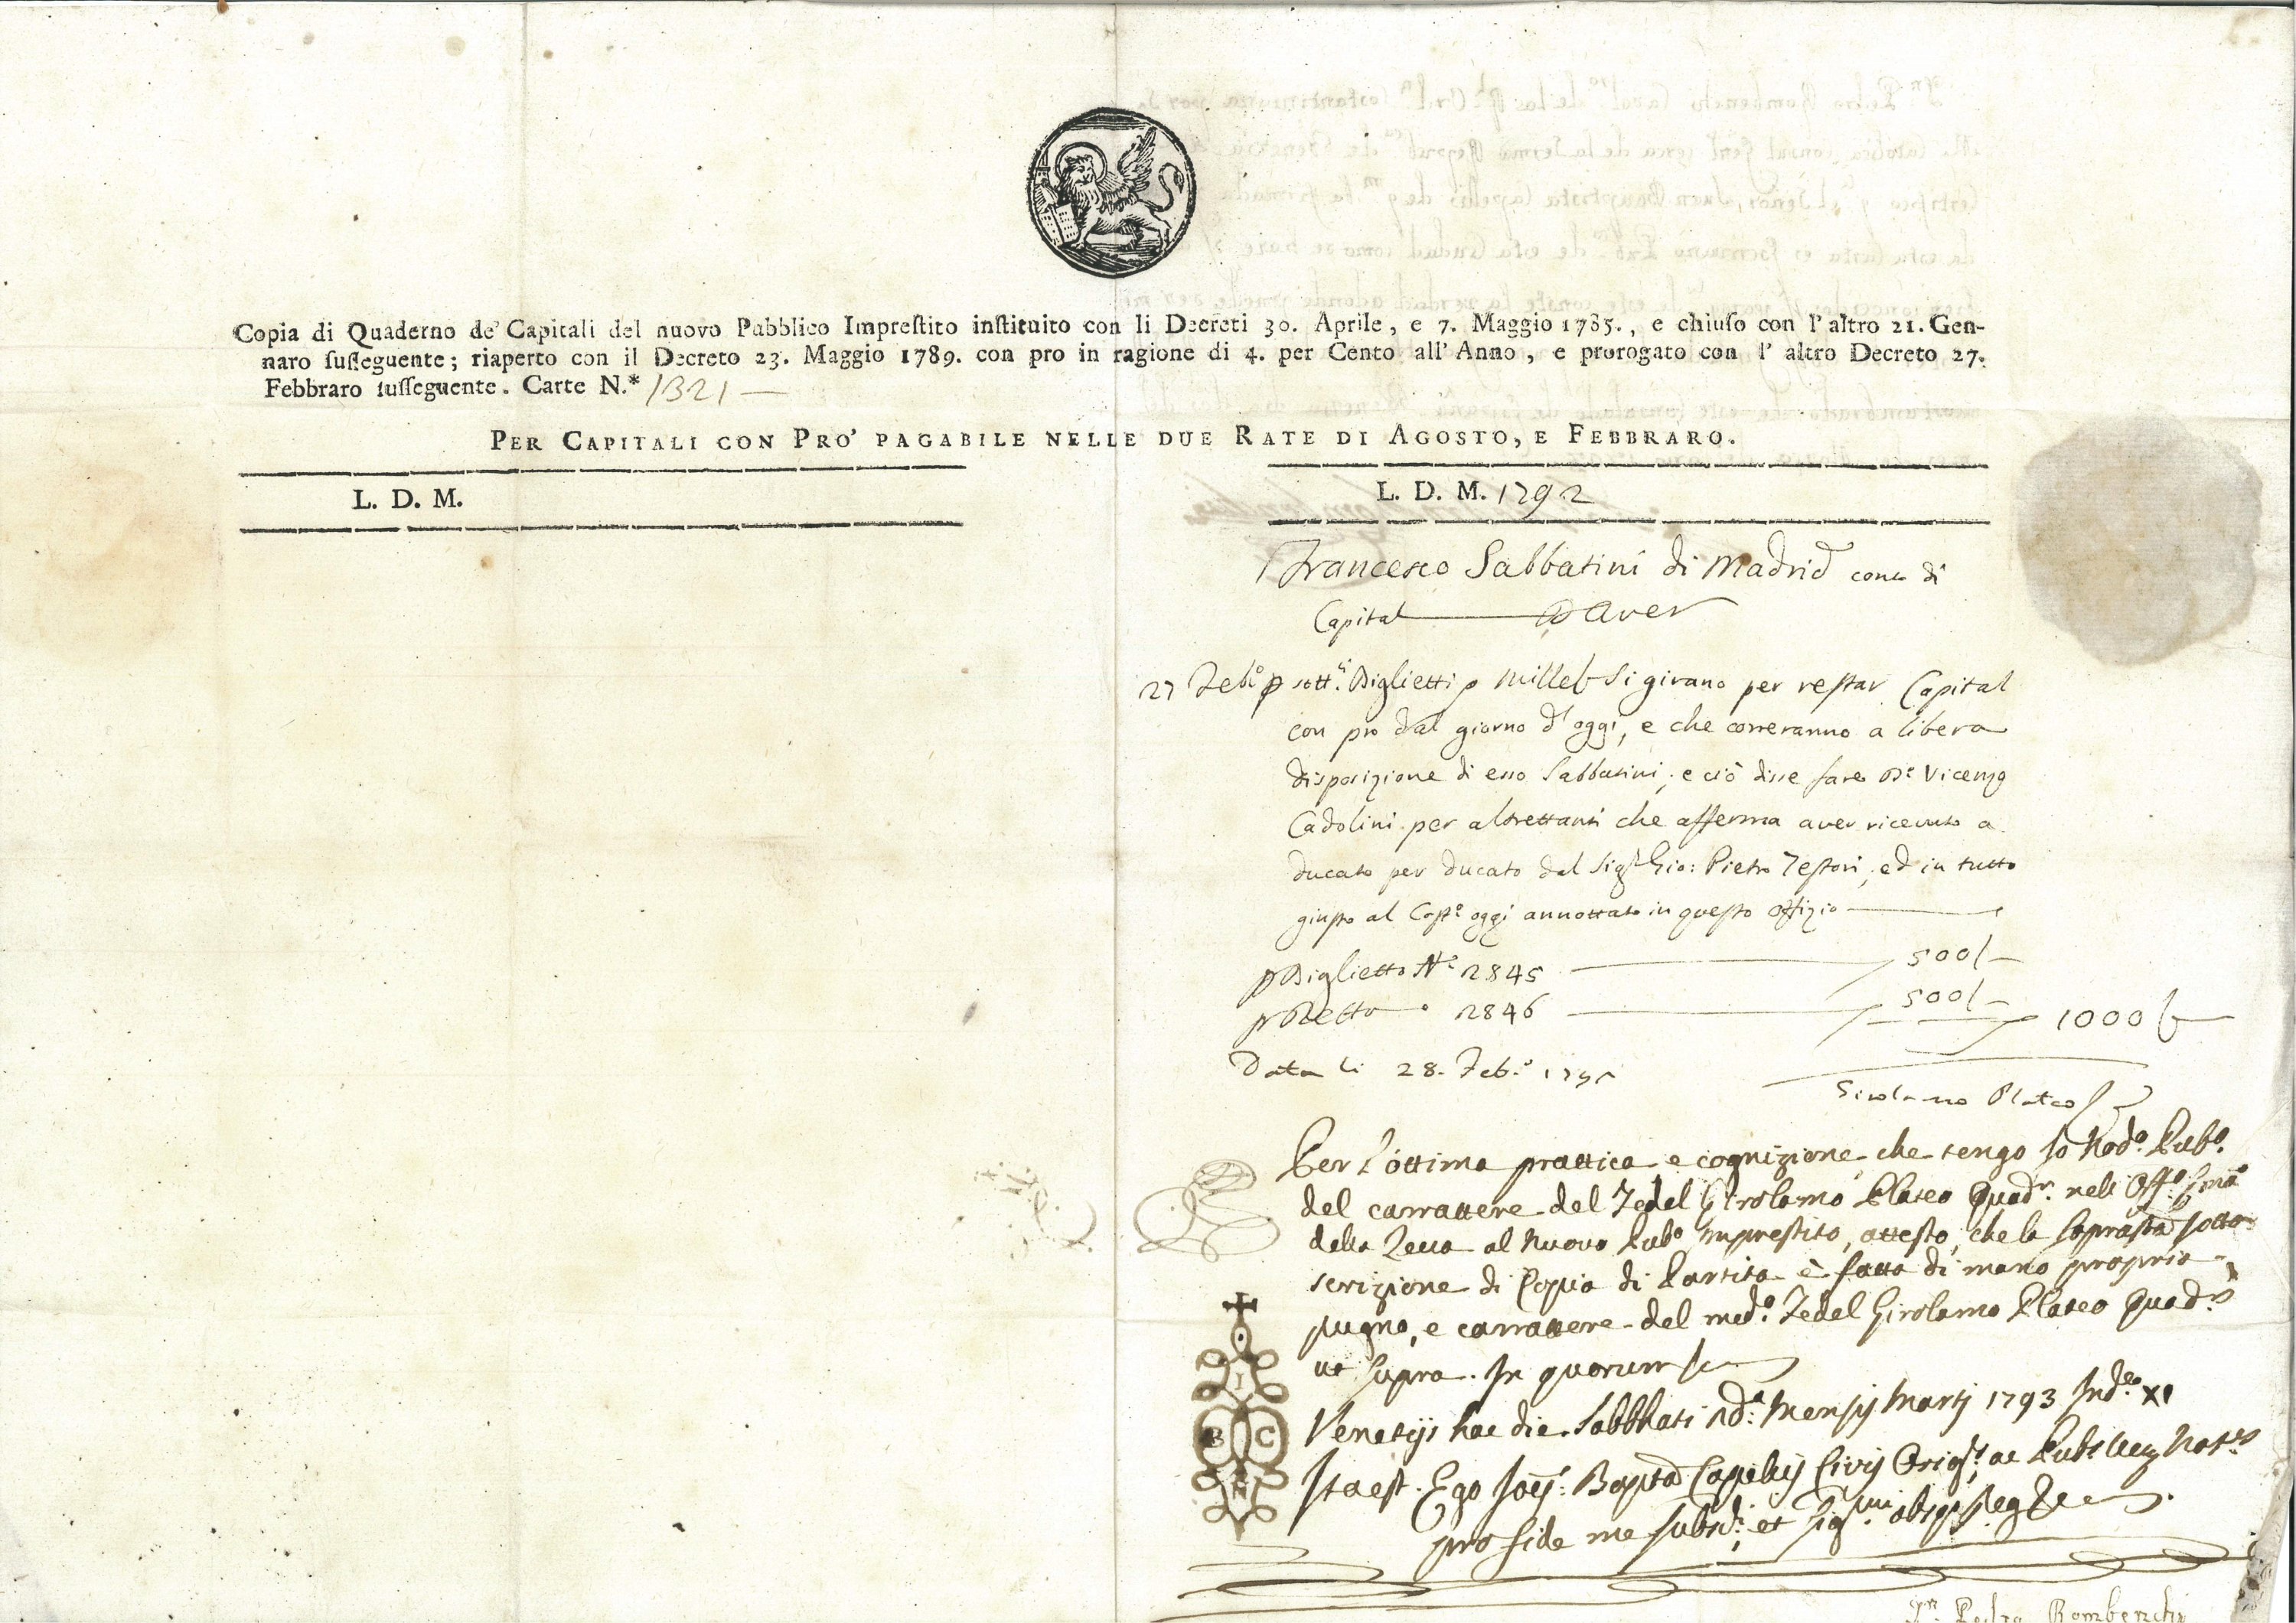 Copia di Quaderno de' Capitali del nuovo Pubblico Impreſtito inſtituito con li Decreti 30. Aprile, e 7. Maggio 1785., e chiuſo con l'altro 21. Gen-
naro ſuſſeguente; riaperto con il Decreto 23. Maggio 1789. con pro in ragione di 4. per Cento all'Anno, e prorogato con l' altro Decreto 27.
Febbraro ſuſſeguente. Carte N.* 1321
PER CAPITALI CON PRO' PAGABILE NELLE DUE RATE DI AGOSTO, E FEBBRARO.
L. D. M.
L. D. M. 1792
Francesco Sabbatini di Madrid conto di
Capital Aver
27 Feb.o p sott.i Biglietti p mille si girano per reſtar Capital
con pro dal giorno d'oggi, e che correranno a libera
disposizione di esso Sabbatini; e ciò disse fare Vicenzo
Cadolini per altrettanti che afferma aver ricevuto a
ducato per ducato dal Sig.r Gio: Pietro Teſtori, ed in tutto
giuſto al Coſt.o oggi annottato in queſto Offizio
p Biglietto N.o 2845 500
p Detto 2846 500 1000
Data li 28. Feb.o
Girolamo Plateo
Per l'ottima prattica e cognizione, che tengo Io Nod.o Pub.o
del carrattere del Fedel Girolamo Plateo Quad.r nell Off.o
della Zecca al Nuovo Pub.o Impreſtito, atteſto, che la sotto
scrizione di Copia di Partita è fatta di mano propria
pugno, e carrattere del med.o Fedel Girolamo Plateo Quad.r
ut supra. In quorum
I
B C
N
Venetijs hac die Sabbhati Mensis Martij 1793 Ind.e XI
Ita eſt. Ego Bapta Capellis Civis Orig.s, ac Pub.s Not.s
pro fide me subs.i, et
Pedro Bombenchi